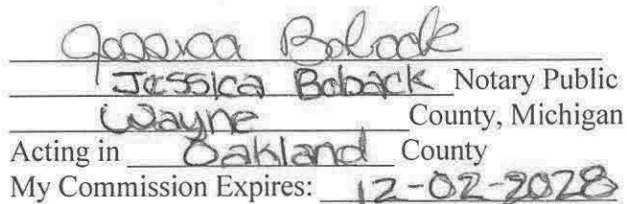 Jessica Boback
Jessica Boback Notary Public
Wayne County, Michigan
Acting in Oakland County
My Commission Expires: 12-02-2028